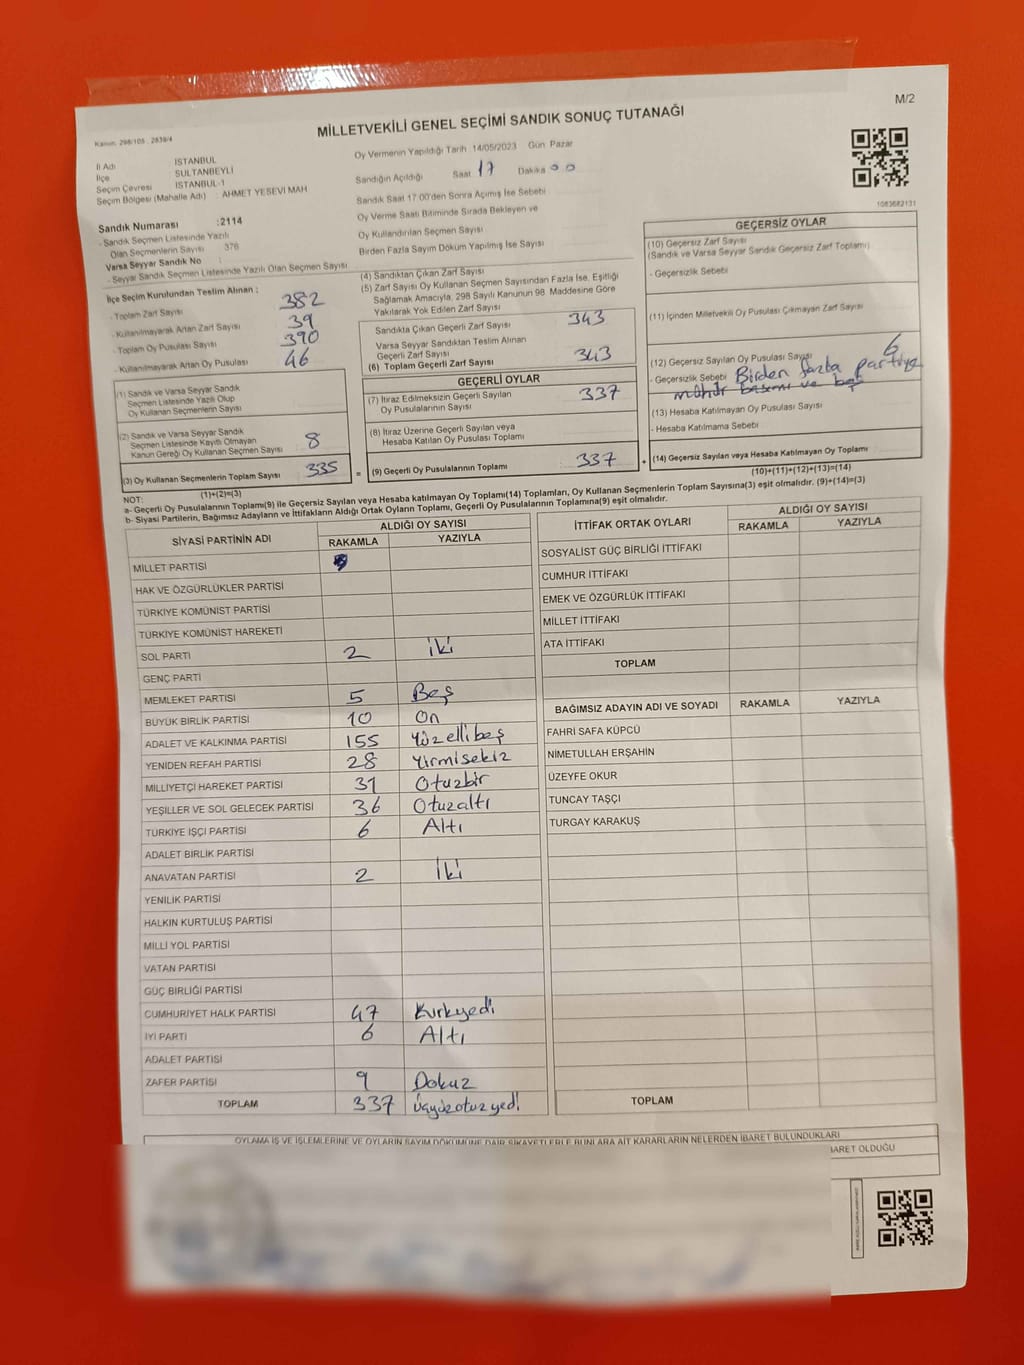 M/2
MİLLETVEKİLİ GENEL SEÇİMİ SANDIK SONUÇ TUTANAĞI
Kanun: 298/105 . 2839/4
İl Adı : İSTANBUL
İlçe : SULTANBEYLİ
Seçim Çevresi : İSTANBUL-1
Seçim Bölgesi (Mahalle Adı) : AHMET YESEVİ MAH
Oy Vermenin Yapıldığı Tarih 14/05/2023 Gün Pazar
Sandığın Açıldığı Saat 17 Dakika 00
Sandık Saat 17:00'den Sonra Açımış İse Sebebi
Oy Verme Saati Bitiminde Sırada Bekleyen ve
Oy Kullandırılan Seçmen Sayısı
Birden Fazla Sayım Döküm Yapılmış İse Sayısı
1083682131
Sandık Numarası :2114
- Sandık Seçmen Listesinde Yazılı
Olan Seçmenlerin Sayısı : 376
Varsa Seyyar Sandık No :
- Seyyar Sandık Seçmen Listesinde Yazılı Olan Seçmen Sayısı
İlçe Seçim Kurulundan Teslim Alınan :
- Toplam Zarf Sayısı 382
- Kullanılmayarak Artan Zarf Sayısı 39
- Toplam Oy Pusulası Sayısı 390
- Kullanılmayarak Artan Oy Pusulası 46
(1) Sandık ve Varsa Seyyar Sandık
Seçmen Listesinde Yazılı Olup
Oy Kullanan Seçmenlerin Sayısı
(2) Sandık ve Varsa Seyyar Sandık
Seçmen Listesinde Kayıtlı Olmayan
Kanun Gereği Oy Kullanan Seçmen Sayısı : 8
(3) Oy Kullanan Seçmenlerin Toplam Sayısı : 335
(1)+(2)=(3)
(4) Sandıktan Çıkan Zarf Sayısı
(5) Zarf Sayısı Oy Kullanan Seçmen Sayısından Fazla İse, Eşitliği
Sağlamak Amacıyla, 298 Sayılı Kanunun 98. Maddesine Göre
Yakılarak Yok Edilen Zarf Sayısı
Sandıkta Çıkan Geçerli Zarf Sayısı 343
Varsa Seyyar Sandıktan Teslim Alınan
Geçerli Zarf Sayısı
(6) Toplam Geçerli Zarf Sayısı 343
GEÇERLİ OYLAR
(7) İtiraz Edilmeksizin Geçerli Sayılan
Oy Pusulalarının Sayısı 337
(8) İtiraz Üzerine Geçerli Sayılan veya
Hesaba Katılan Oy Pusulası Toplamı
= (9) Geçerli Oy Pusulalarının Toplamı : 337
GEÇERSİZ OYLAR
(10) Geçersiz Zarf Sayısı
(Sandık ve Varsa Seyyar Sandık Geçersiz Zarf Toplamı)
- Geçersizlik Sebebi
(11) İçinden Milletvekili Oy Pusulası Çıkmayan Zarf Sayısı
(12) Geçersiz Sayılan Oy Pusulası Sayısı 6
- Geçersizlik Sebebi Birden fazla partiye
mühür basımı ve boş
(13) Hesaba Katılmayan Oy Pusulası Sayısı
- Hesaba Katılmama Sebebi
+ (14) Geçersiz Sayılan veya Hesaba Katılmayan Oy Toplamı
(10)+(11)+(12)+(13)=(14)
NOT:
a- Geçerli Oy Pusulalarının Toplamı(9) ile Geçersiz Sayılan veya Hesaba katılmayan Oy Toplamı(14) Toplamları, Oy Kullanan Seçmenlerin Toplam Sayısına(3) eşit olmalıdır. (9)+(14)=(3)
b- Siyasi Partilerin, Bağımsız Adayların ve İttifakların Aldığı Ortak Oyların Toplamı, Geçerli Oy Pusulalarının Toplamına(9) eşit olmalıdır.
SİYASİ PARTİNİN ADI ALDIĞI OY SAYISI
RAKAMLA YAZIYLA
MİLLET PARTİSİ
HAK VE ÖZGÜRLÜKLER PARTİSİ
TÜRKİYE KOMÜNİST PARTİSİ
TÜRKİYE KOMÜNİST HAREKETİ
SOL PARTİ 2 iki
GENÇ PARTİ
MEMLEKET PARTİSİ 5 Beş
BÜYÜK BİRLİK PARTİSİ 10 On
ADALET VE KALKINMA PARTİSİ 155 Yüzellibeş
YENİDEN REFAH PARTİSİ 28 Yirmisekiz
MİLLİYETÇİ HAREKET PARTİSİ 31 Otuzbir
YEŞİLLER VE SOL GELECEK PARTİSİ 36 Otuzaltı
TÜRKİYE İŞÇİ PARTİSİ 6 Altı
ADALET BİRLİK PARTİSİ
ANAVATAN PARTİSİ 2 İki
YENİLİK PARTİSİ
HALKIN KURTULUŞ PARTİSİ
MİLLİ YOL PARTİSİ
VATAN PARTİSİ
GÜÇ BİRLİĞİ PARTİSİ
CUMHURİYET HALK PARTİSİ 47 Kırkyedi
İYİ PARTİ 6 Altı
ADALET PARTİSİ
ZAFER PARTİSİ 9 Dokuz
TOPLAM 337 üçyüzotuzyedi
İTTİFAK ORTAK OYLARI ALDIĞI OY SAYISI
RAKAMLA YAZIYLA
SOSYALİST GÜÇ BİRLİĞİ İTTİFAKI
CUMHUR İTTİFAKI
EMEK VE ÖZGÜRLÜK İTTİFAKI
MİLLET İTTİFAKI
ATA İTTİFAKI
TOPLAM
BAĞIMSIZ ADAYIN ADI VE SOYADI RAKAMLA YAZIYLA
FAHRİ SAFA KÜPCÜ
NİMETULLAH ERŞAHİN
ÜZEYFE OKUR
TUNCAY TAŞÇI
TURGAY KARAKUŞ
TOPLAM
OYLAMA İŞ VE İŞLEMLERİNE VE OYLARIN SAYIM DÖKÜMÜNE DAİR ŞİKAYETLERLE BUNLARA AİT KARARLARIN NELERDEN İBARET BULUNDUKLARI
OLDUĞU